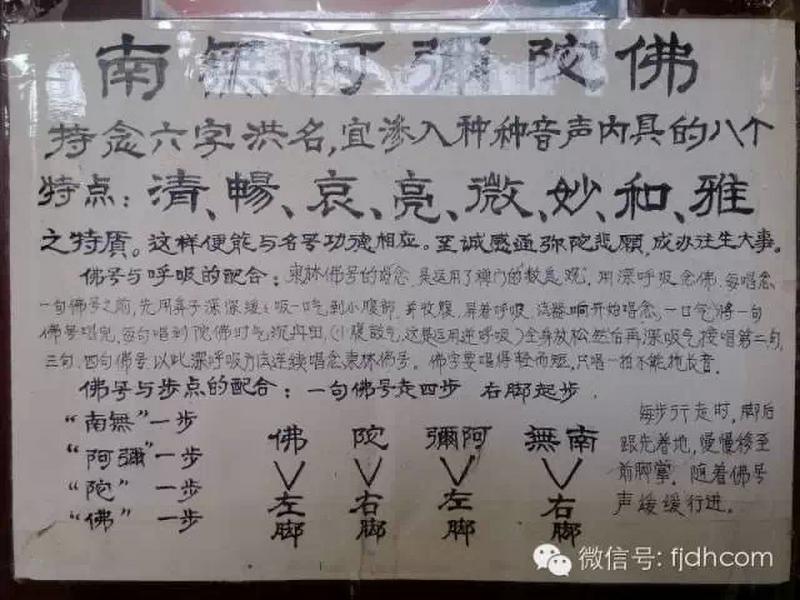 南無阿彌陀佛
持念六字洪名,宜渗入种种音声内具的八个
特点:清、暢、哀、亮、微、妙、和、雅
之特质。这样便能与名号功德相应。至诚感通弥陀悲願,成办往生大事。
佛号与呼吸的配合:東林佛号的唱念,是运用了禅门的"数息观",用深呼吸念佛,每唱念
一句佛号之前,先用鼻子深深缓缓吸一口气到小腹部,并收腹,屏着呼吸,法器响开始唱念,一口气将一句
佛号唱完,每句唱到陀佛时气沉丹田,(小腹鼓气,这是运用逆呼吸)全身放松然后再深吸气接唱第二句,
三句,四句佛号,以此深呼吸方法连续唱念東林佛号。佛字要唱得轻而短,只唱一拍不能拖长音.
佛号与步点的配合:一句佛号走四步 右脚起步.
"南無"一步
"阿彌"一步
"陀"一步
"佛"一步
佛 陀 彌阿 無南
左脚 右脚 左脚 右脚
每步行走时,脚后
跟先着地,慢慢移至
前脚掌.随着佛号
声缓缓行进.
微信号: fjdhcom